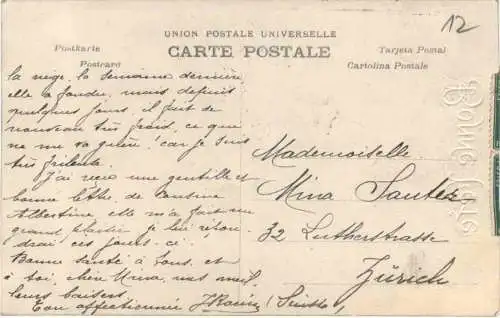 12
UNION POSTALE UNIVERSELLE
Postkarte CARTE POSTALE Tarjeta Postal
Postcard Cartolina Postale
la neige, la semaine dernière
elle a fondu, mais depuis
quelques jours, il fait de
nouveau très froid, ce que
ne me va guère! car je suis
très frileute.
J'ai reçu une gentille et
bonne lettre de cousine
Albertine, elle m'a fait un
grand plaisir je lui répon-
drai ces jours-ci.
Bonne santé à tous, et
à toi, chère Mina, mes meil-
leurs baisers.
Ton affectionnée
Mademoiselle
Mina Sauter
32 Lutherstrasse
Zürich
Bonne